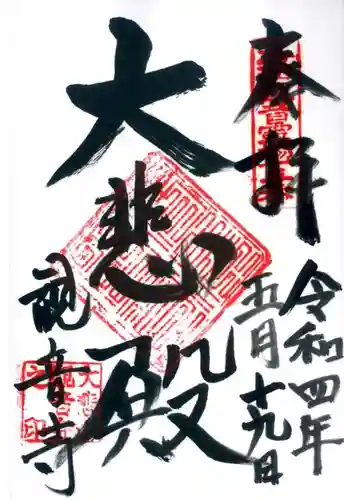 奉拝
令和四年
五月十九日
大悲殿
観音寺